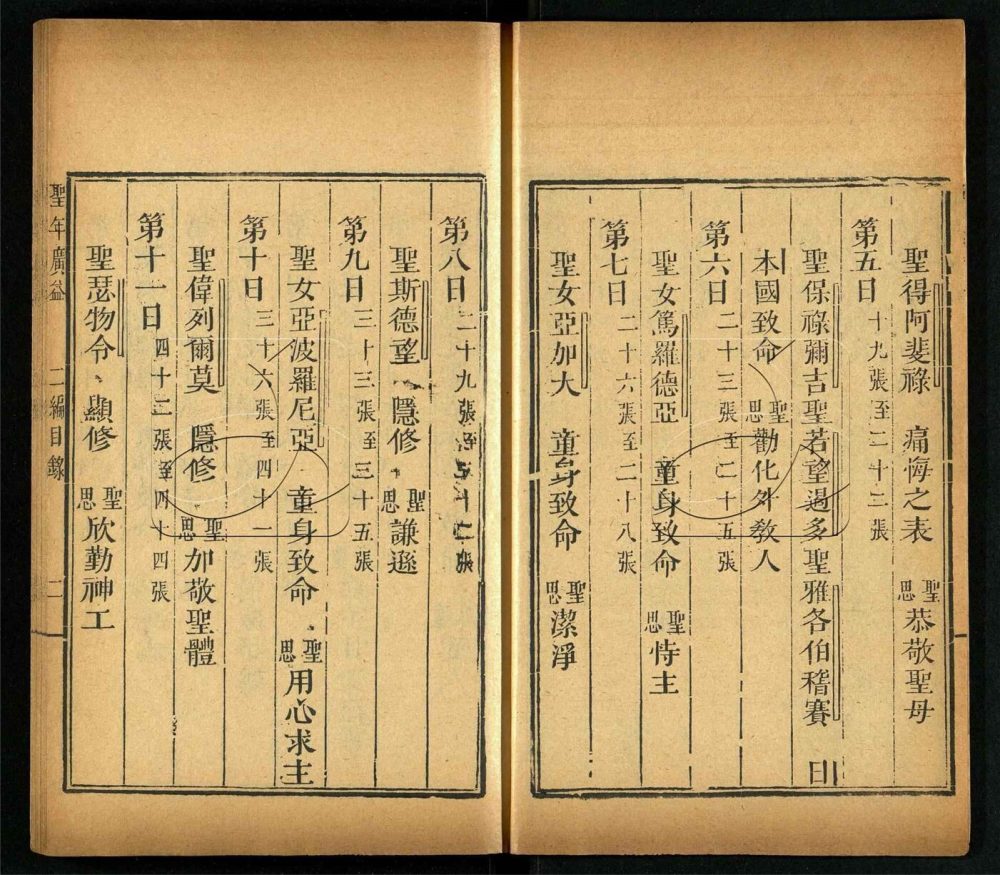 聖得阿斐祿 痛悔之表 聖思恭敬聖母
第五日 十九張至二十二張
聖保祿彌吉聖若望過多聖雅各伯稽賽 日
本國致命 聖思勸化外教人
第六日 二十三張至二十五張
聖女篤羅德亞 童身致命 聖思恃主
第七日 二十六張至二十八張
聖女亞加大 童身致命 聖思潔淨
第八日 二十九張至三十二張
聖斯德望 隱修 聖思謙遜
第九日 三十三張至三十五張
聖女亞波羅尼亞 童身致命 聖思用心求主
第十日 三十六張至四十一張
聖偉列爾莫 隱修 聖思加敬聖體
第十一日 四十二張至四十四張
聖瑟物令 顯修 聖思欣勤神工
聖年廣益 二編目錄 二